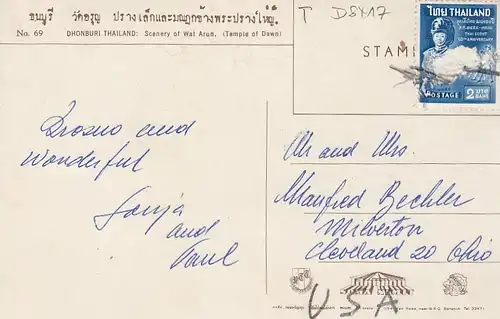 ธนบุรี วัดอรุณ ปรางเล็กและมณฑปข้างพระปรางใหญ่.
No. 69 DHONBURI THAILAND: Scenery of Wat Arun. (Temple of Dawn)
T D8417
STAM
ไทย THAILAND
POSTAGE 2 BAHT
and
Wonderful
Sonja
and
Paul
Mr and Mrs.
Manfred Bechler
Milverton
Cleveland 20 Ohio
USA